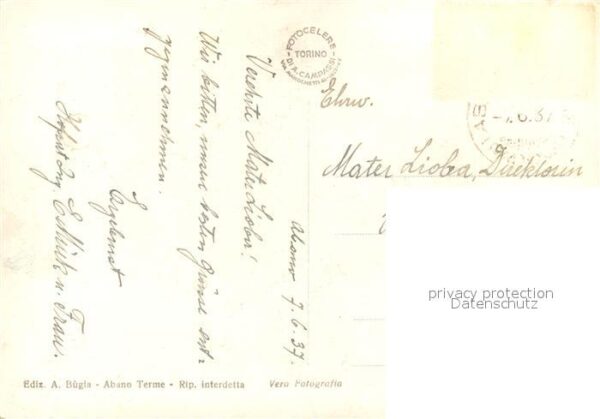 Abano 7.6.37.
Verehrte Mater Lioba!
Wir bitten, unsere besten Grüsse ent=
gegenzunehmen.
Ergebenst
u. Frau.
FOTOCELERE
TORINO
DI A. CAMPASSI
Ehrw.
Mater Lioba, Direktorin
-7.6.37
privacy protection
Datenschutz
Ediz. A. Bùgia - Abano Terme - Rip. interdetta
Vera Fotografia